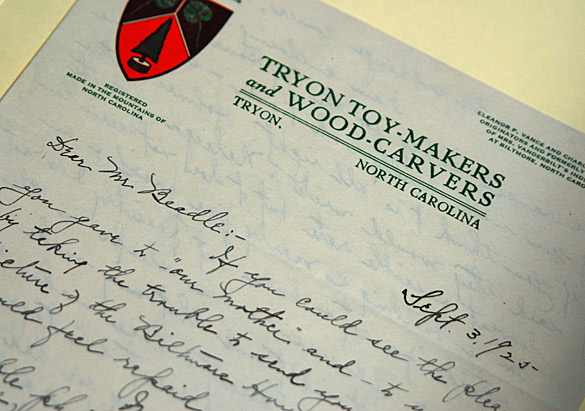 REGISTERED
MADE IN THE MOUNTAINS OF
NORTH CAROLINA
TRYON TOY-MAKERS
and WOOD-CARVERS
TRYON.
NORTH CAROLINA
ELEANOR P. VANCE AND CHARL
ORIGINATORS AND FORMER
OF MRS. VANDERBILT'S INDU
AT BILTMORE, NORTH CAR
Sept 3, 1925-
Dear Mr. Beadle:-
If you could see the plea
you gave to "our mother" and - to u
by taking the trouble to send you
picture of the Biltmore Hou
feel repaid